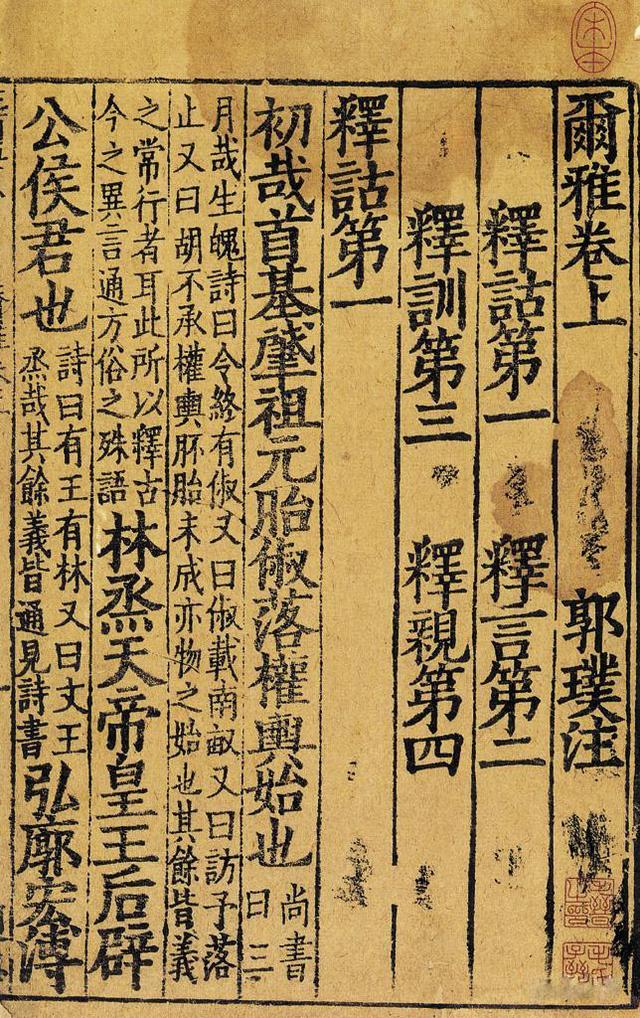 爾雅卷上 郭璞注
釋詁第一 釋言第二
釋訓第三 釋親第四
釋詁第一
初哉首基肈祖元胎俶落權輿始也 尚書
曰三
月哉生魄詩曰令終有俶又曰俶載南畝又曰訪予落
止又曰胡不承權輿胚胎未成亦物之始也其餘皆義
之常行者耳此所以釋古
今之異言通方俗之殊語
林烝天帝皇王后辟
公侯君也
詩曰有王有林又曰文王
烝哉其餘義皆通見詩書
弘廓宏溥